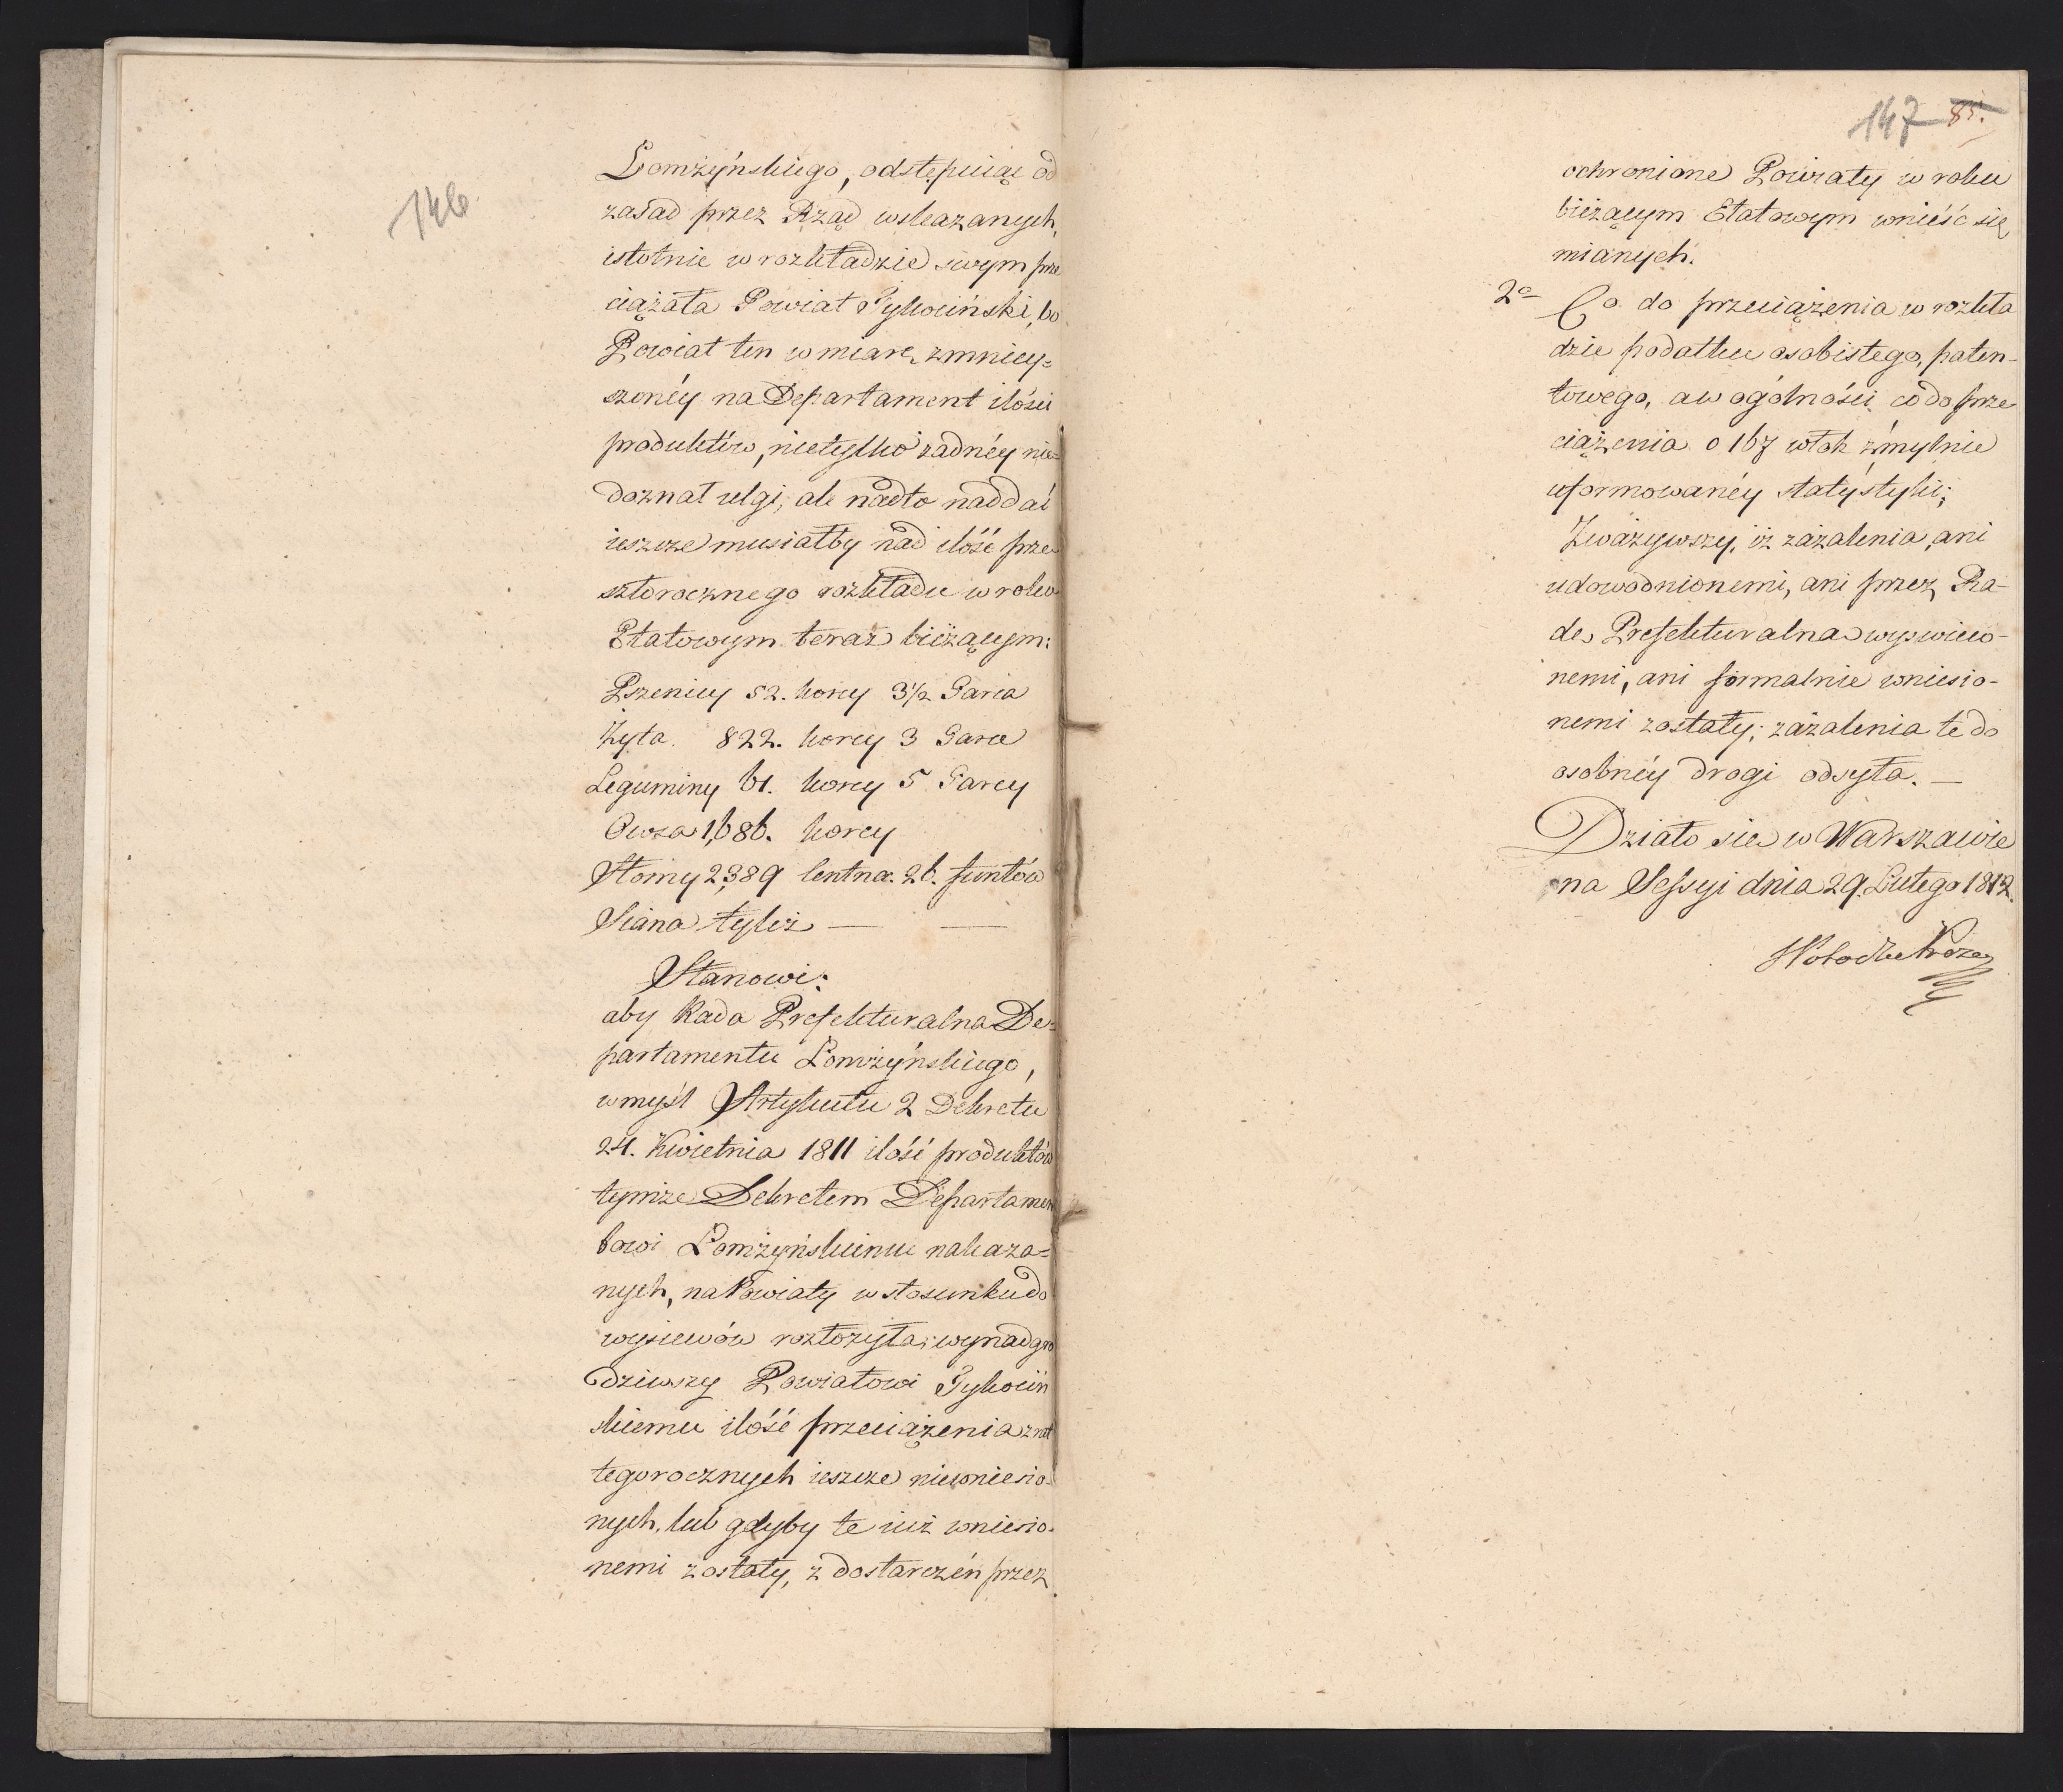 146.
Łomżyńskiego, odstępuiąc od
zasad przez Rząd wskazanych,
istotnie w rozkładzie swym prze
ciążała Powiat Tykociński, bo
Powiat ten w miarę zmniey=
szonéy na Departament ilości
produktów, nietylko żadnéy nie=
doznał ulgi, ale nadto naddać
ieszcze musiałby nad ilość prze=
szłorocznego rozkładu w roku
Etatowym teraz bieżącym:
Pszenicy 52. korcy 3 1/2 Garca
Żyta. 822. korcy 3 Garce
Leguminy 61. korcy 5 Garcy
Owsa 1,686. korcy
Słomy 2,389 Centna. 26. funtów
Siana tyleż — —
Stanowi:
aby Rada Prefekturalna De=
partamentu Łomżyńskiego,
w myśl Artykułu 2 Dekretu
24. Kwietnia 1811 ilość produktów
tymże Dekretem Departamen
towi Łomżyńskiemu nakaza=
nych, na Powiaty w stosunku do
wysiewów rozłożyła; wynadgro
dziwszy Powiatowi Tykociń
skiemu ilość przeciążenia z rat
tegorocznych ieszcze niewniesio=
nych, lub gdyby te iuż wniesio=
nemi zostały, z dostarczeń przez
147 85.
ochronione Powiaty w roku
bieżącym Etatowym wnieść się
mianych.
2o Co do przeciążenia w rozkła
dzie podatku osobistego, paten-
towego, a w ogólności co do prze
ciążenia o 167 włók z mylnie
uformowanéy statystyki;
Zważywszy, iż zażalenia, ani
udowodnionemi, ani przez Ra-
dę Prefekturalną wyswieco-
nemi, ani formalnie wniesio-
nemi zostały; zażalenia te do
osobnéy drogi odsyła. —
Działo się w Warszawie
na Sessyi dnia 29. Lutego 1812.